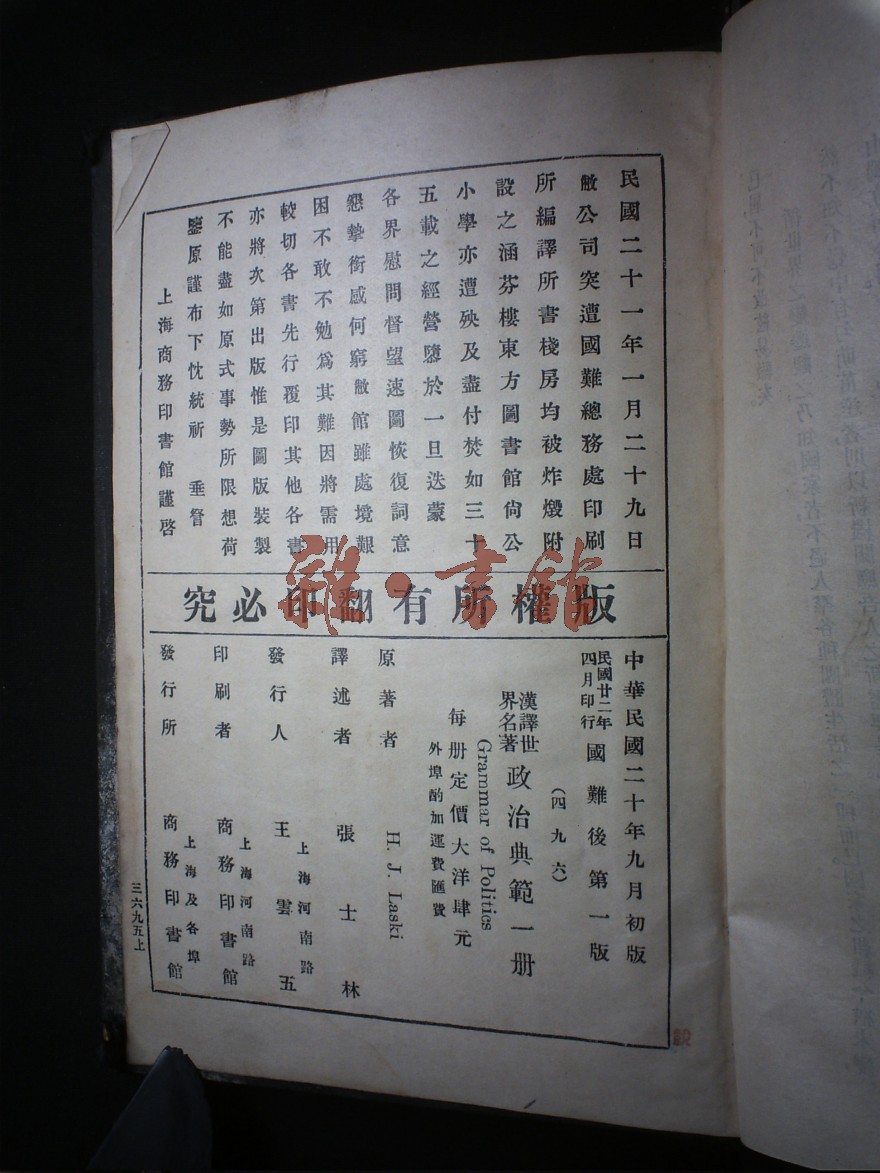 民國二十一年一月二十九日
敝公司突遭國難總務處印刷
所編譯所書棧房均被炸燬附
設之涵芬樓東方圖書館尙公
小學亦遭殃及盡付焚如三十
五載之經營墮於一旦迭蒙
各界慰問督望速圖恢復詞意
懇摯銜感何窮敝館雖處境艱
困不敢不勉爲其難因將需用
較切各書先行覆印其他各書
亦將次第出版惟是圖版裝製
不能盡如原式事勢所限想荷
鑒原謹布下忱統祈 垂詧
上海商務印書館謹啓
版權所有翻印必究
中華民國二十年九月初版
民國廿二年四月印行 國難後第一版
(四九六)
漢譯世界名著 政治典範一册
Grammar of Politics
每册定價大洋肆元
外埠酌加運費匯費
原著者 H. J. Laski
譯述者 張士林
發行人 王雲五
上海河南路
印刷者 商務印書館
上海河南路
發行所 商務印書館
上海及各埠
三六九五上
雜·書館